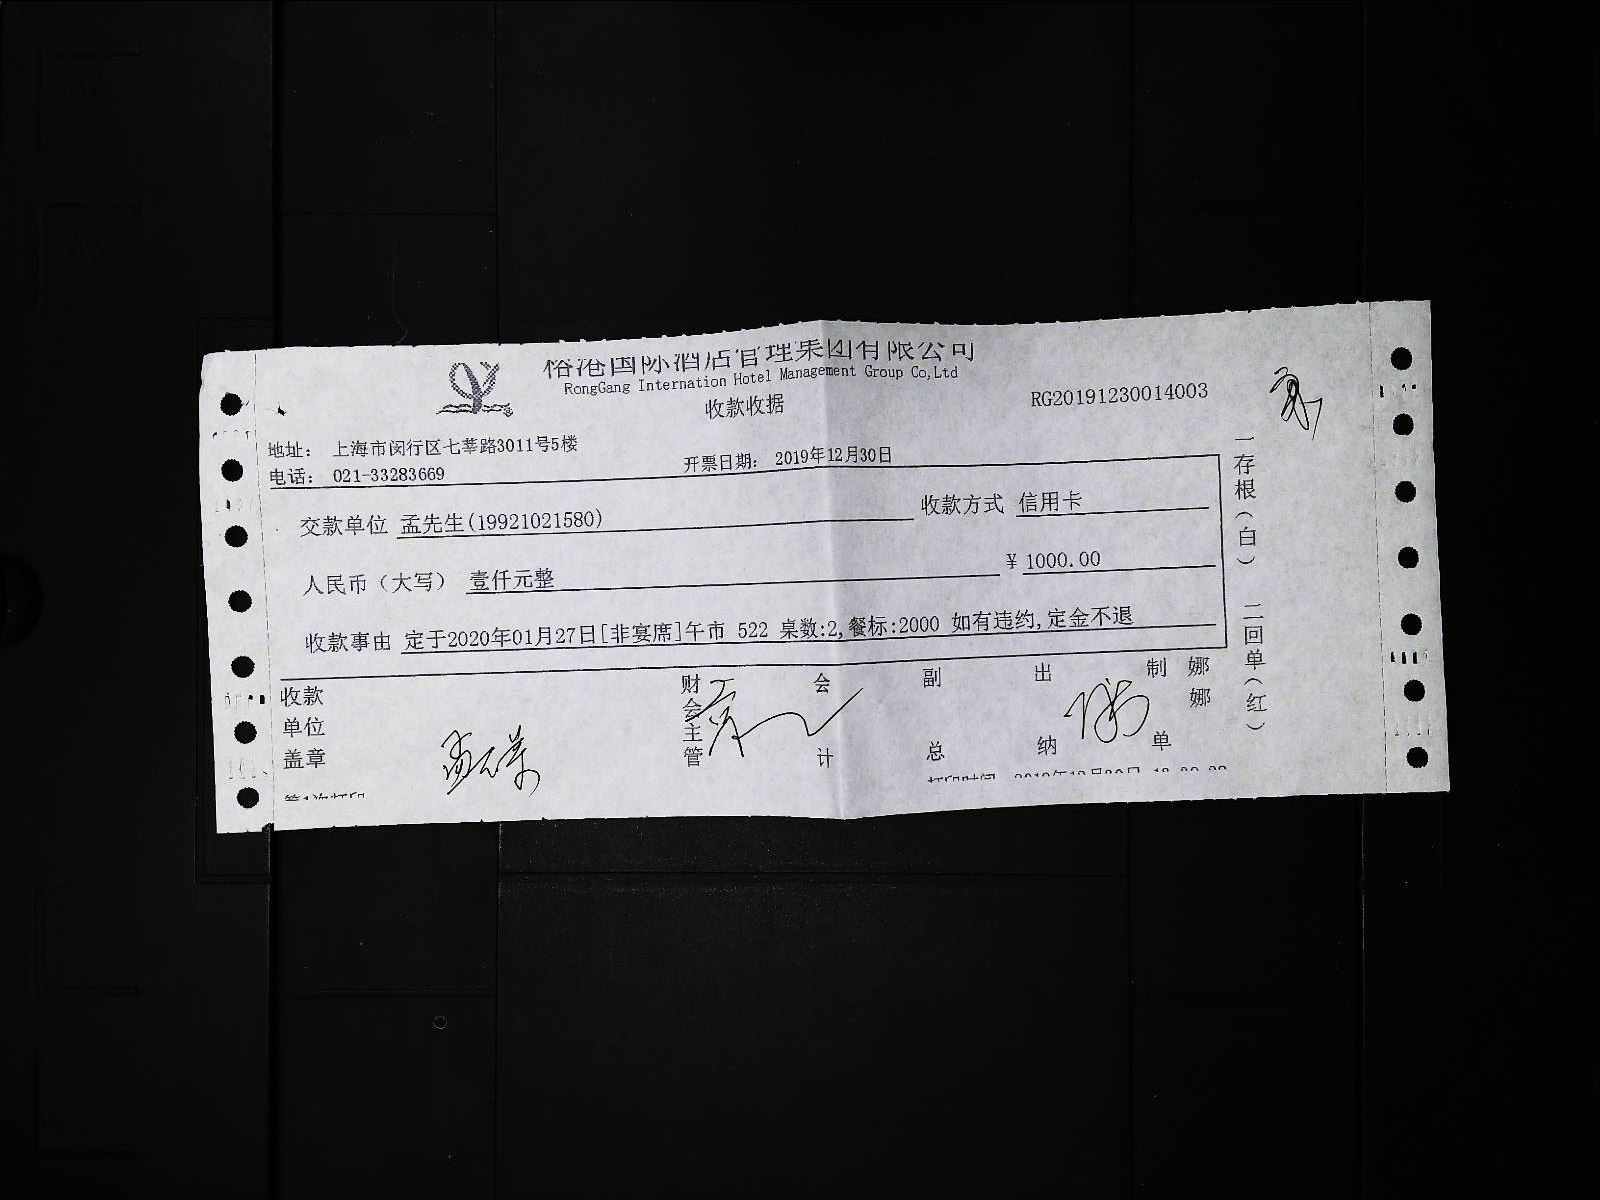 国际酒店管理集团有限公司
RongGang Internation Hotel Management Group Co,Ltd
收款收据
RG20191230014003
地址： 上海市闵行区七莘路3011号5楼
电话： 021-33283669
开票日期： 2019年12月30日
交款单位 孟先生(19921021580)
收款方式 信用卡
人民币（大写） 壹仟元整
¥ 1000.00
收款事由 定于2020年01月27日[非宴席]午市 522 桌数:2,餐标:2000 如有违约,定金不退
收款单位盖章
财会主管
会计
副总
出纳
制单
娜娜
一存根（白） 二回单（红）
第1次打印
打印时间 2019年12月30日